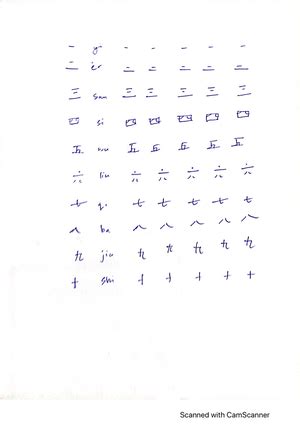 一 yi 一 一 一 一 一
二 èr 二 二 二 二 二
三 san 三 三 三 三 三
四 si 四 四 四 四 四
五 wu 五 五 五 五 五
六 liu 六 六 六 六 六
七 qi 七 七 七 七 七
八 ba 八 八 八 八 八
九 jiu 九 九 九 九 九
十 shi 十 十 十 十 十
Scanned with CamScanner